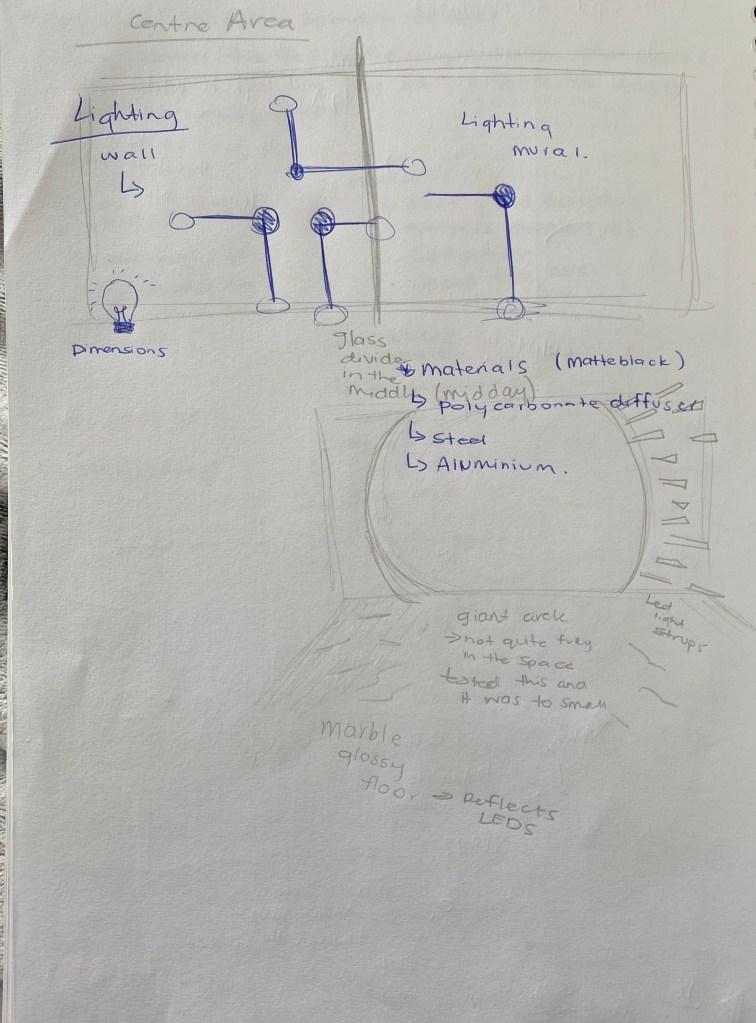 Centre Area
Lighting
wall
↳
Lighting
mural.
Dimensions
glass
divider
in the
middle (midday)
* materials (matte black)
↳ Polycarbonate diffuser
↳ Steel
↳ Aluminium.
Led
light
strips
giant circle
→ not quite
in the space
tested this and
it was to small
marble
glossy
floor → Reflects
LEDS